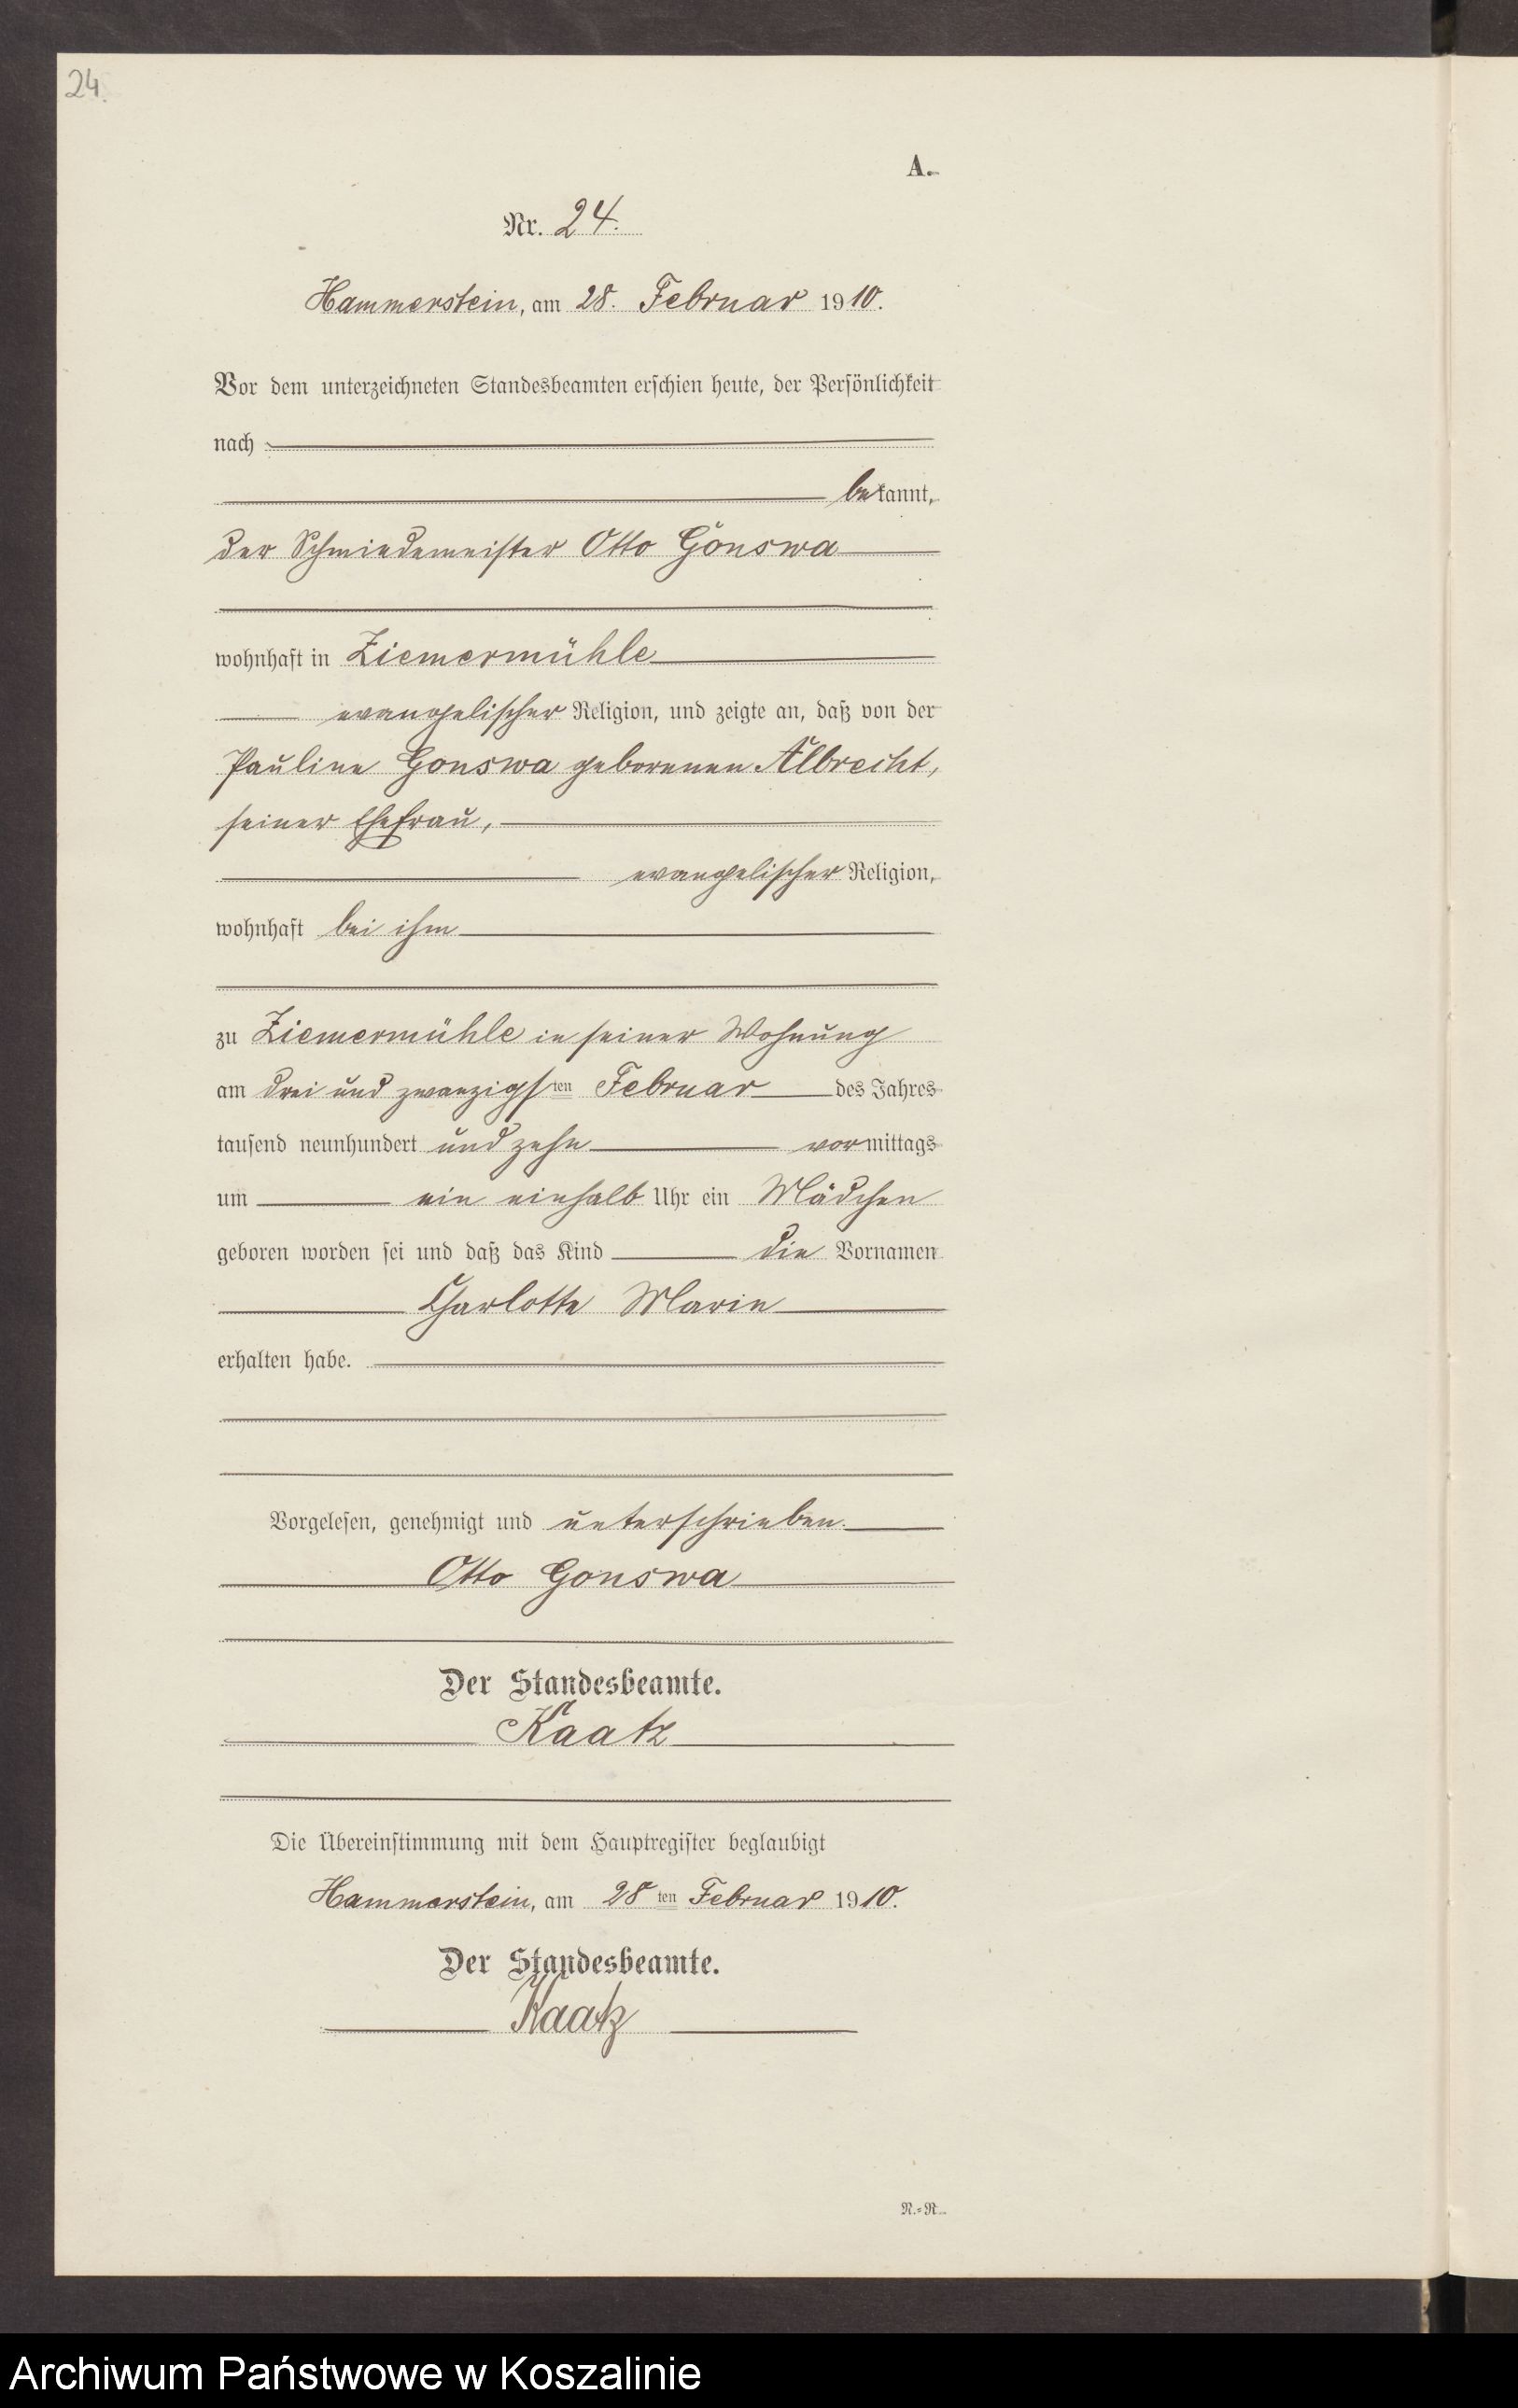 24.
A.
Nr. 24.
Hammerstein, am 28. Februar 1910.
Vor dem unterzeichneten Standesbeamten erschien heute, der Persönlichkeit
nach
bekannt,
der Schmiedemeister Otto Gonswa
wohnhaft in Ziemermühle
evangelischer Religion, und zeigte an, daß von der
Pauline Gonswa geborenen Albrecht,
seiner Ehefrau,
evangelischer Religion,
wohnhaft bei ihm
zu Ziemermühle in seiner Wohnung
am drei und zwanzigsten Februar des Jahres
tausend neunhundert und zehn vormittags
um ein einhalb Uhr ein Mädchen
geboren worden sei und daß das Kind die Vornamen
Charlotte Marie
erhalten habe.
Vorgelesen, genehmigt und unterschrieben.
Otto Gonswa
Der Standesbeamte.
Kaatz
Die Übereinstimmung mit dem Hauptregister beglaubigt
Hammerstein, am 28ten Februar 1910.
Der Standesbeamte.
Kaatz
N.=R.
Archiwum Państwowe w Koszalinie